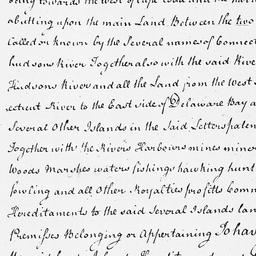 being towards the West of Cape Cod and
abutting upon the main Land Between the two
Called or known by the Several names of Connect
hudsons River Together also with the said Rive
Hudsons River and all the Land from the West s
ecticut River to the East side of Delaware Bay a
Several Other Islands in the Said Letters paten
Together with the Rivers Harbours mines miner
Woods Marshes waters fishings hawking hunt
fowling and all Other Royalties profitts Comm
Hereditaments to the said Several Islands lan
Premisses Belonging or Appertaining To hav